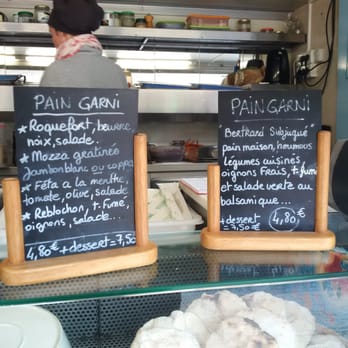 PAIN GARNI
* Roquefort, beurre,
noix, salade.
* Mozza gratinée
jambon blanc ou coppa
* Fêta à la menthe,
tomate, olive, salade
* Reblochon, t. fumé,
oignons, salade...
4,80€ + dessert = 7,50
PAIN GARNI
"Bertrand Subjugué"
pain maison, houmous
légumes cuisinés,
oignons frais, t. fumé
et salade verte au
balsamique...
+ dessert
= 7,50€
4,80€